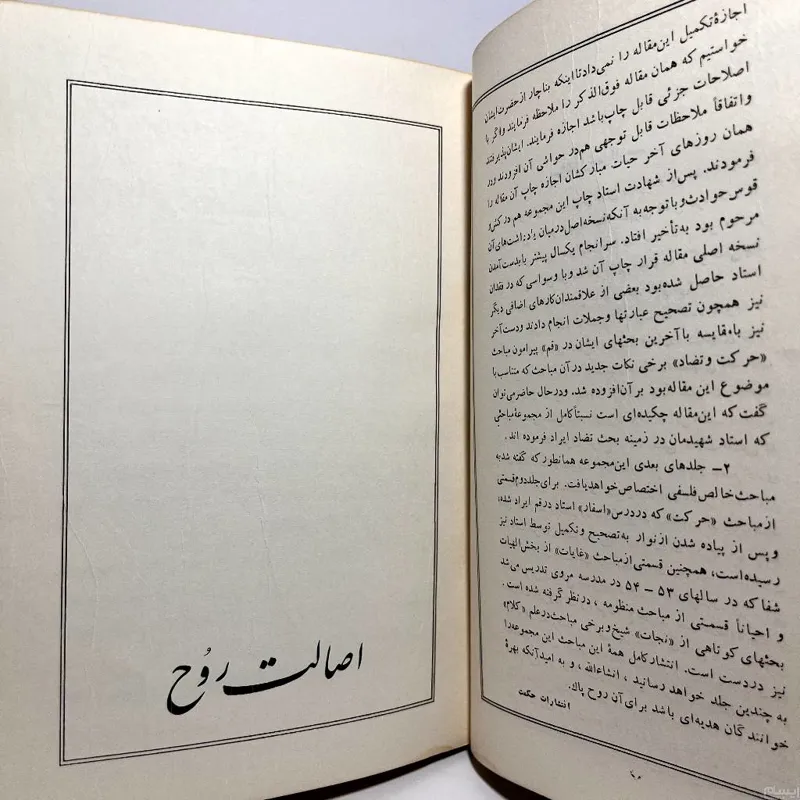 اجازهٔ تکمیل این مقاله را نمی‌داد تا اینکه بناچار از حضرت ایشان
خواستیم که همان مقاله فوق‌الذکر را ملاحظه فرمایند و اگر با
اصلاحات جزئی قابل چاپ باشد اجازه فرمایند. ایشان پذیرفتند
و اتفاقاً ملاحظات قابل توجهی هم در حواشی آن افزودند و در
همان روزهای آخر حیات مبارکشان اجازه چاپ آن مقاله را
فرمودند. پس از شهادت استاد چاپ این مجموعه هم در کش و
قوس حوادث و با توجه به آنکه نسخه اصل در میان یادداشت‌های آن
مرحوم بود به تأخیر افتاد. سرانجام یکسال پیشتر با بدست آمدن
نسخه اصلی مقاله قرار چاپ آن شد و با وسواسی که در فقدان
استاد حاصل شده بود بعضی از علاقمندان کارهای اضافی دیگر
نیز همچون تصحیح عبارتها و جملات انجام دادند و دست آخر
نیز با مقایسه با آخرین بحثهای ایشان در «قم» پیرامون مباحث
«حرکت و تضاد» برخی نکات جدید در آن مباحث که متناسب با
موضوع این مقاله بود بر آن افزوده شد. و در حال حاضر می‌توان
گفت که این مقاله چکیده‌ای است نسبتاً کامل از مجموعهٔ مباحثی
که استاد شهیدمان در زمینه بحث تضاد ایراد فرموده اند.
۲ـ جلدهای بعدی این مجموعه همانطور که گفته شد به
مباحث خالص فلسفی اختصاص خواهد یافت. برای جلد دوم قسمتی
از مباحث «حرکت» که در درس «اسفار» استاد در قم ایراد شده،
و پس از پیاده شدن از نوار به تصحیح و تکمیل توسط استاد نیز
رسیده است، همچنین قسمتی از مباحث «غایات» از بخش الهیات
شفا که در سالهای ۵۳ ـ ۵۴ در مدرسه مروی تدریس می‌شد
و احیاناً قسمتی از مباحث منظومه، در نظر گرفته شده است.
بحثهای کوتاهی از «نجات» شیخ و برخی مباحث در علم «کلام»
نیز در دست است. انتشار کامل همهٔ این مباحث این مجموعه را
به چندین جلد خواهد رسانید، انشاءالله، و به امید آنکه بهرهٔ
خوانندگان هدیه‌ای باشد برای آن روح پاک.
انتشارات حکمت
اصالت روُح
ایسام